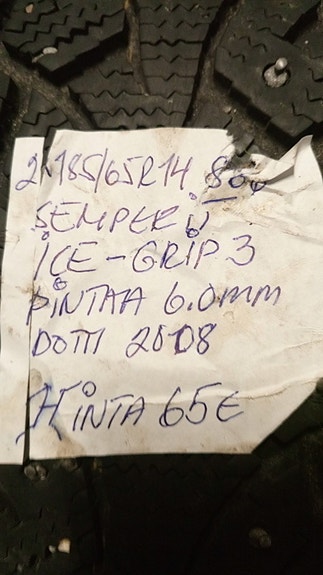 2.185/65R14 80€
SEMPERÜ
ICE-GRIP 3
PINTAA 6.0mm
DOTTI 2008
HINTA 65€